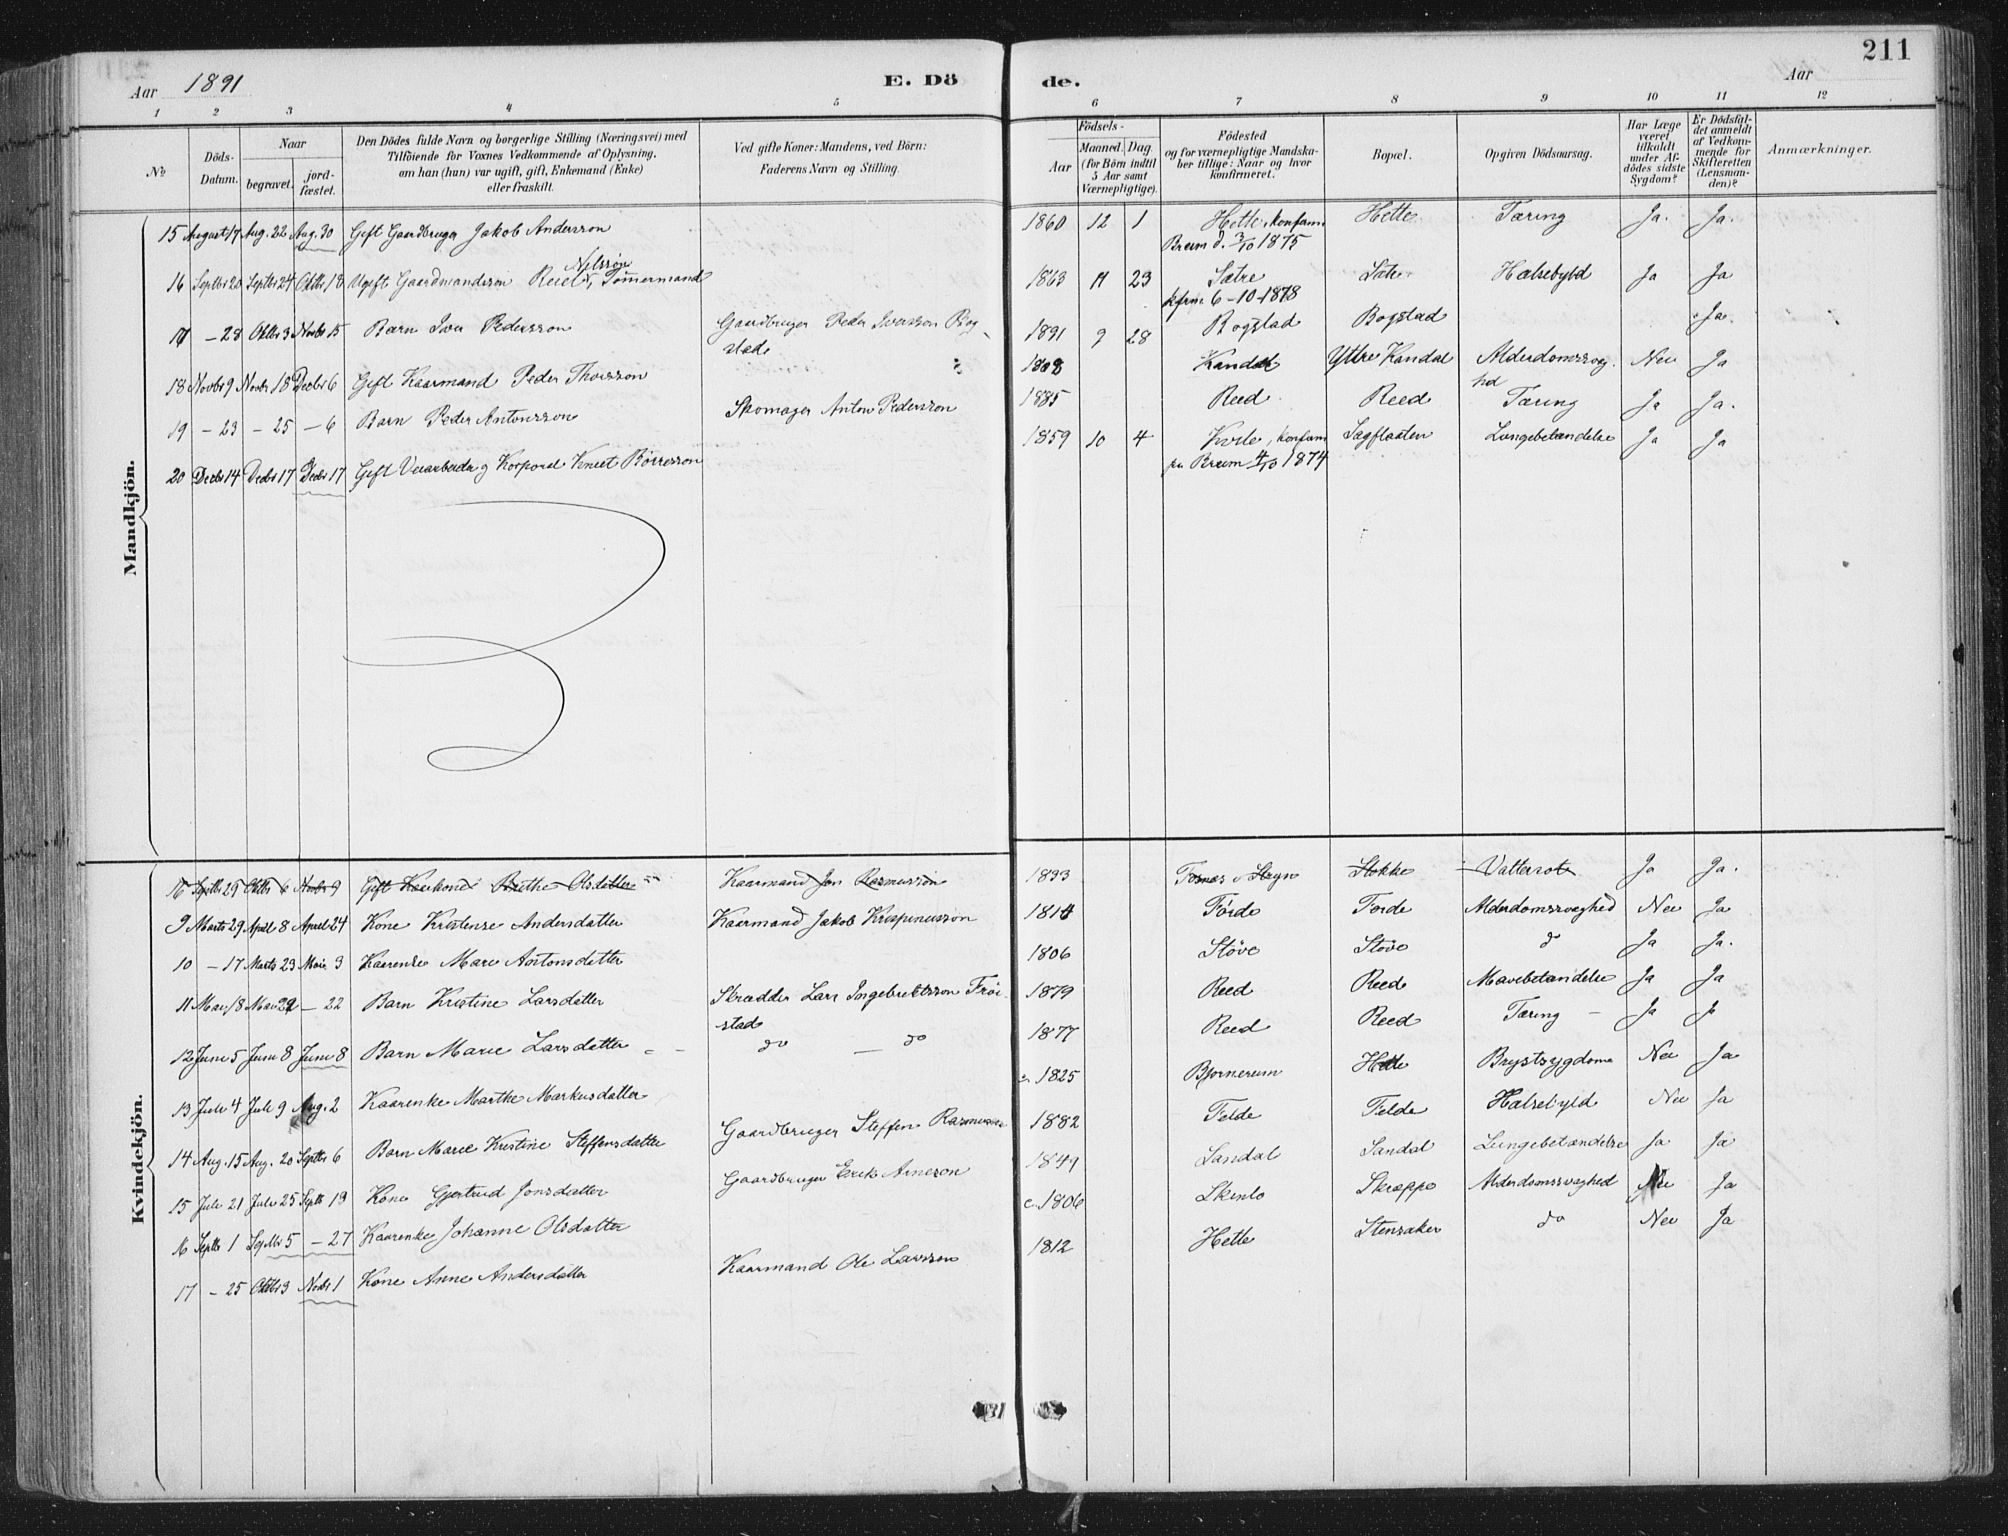 211
Aar 1891
E. Dö
de.
Aar
1 2 3 4 5 6 7 8 9 10 11 12
№
Döds-Datum.
Naar
begravet.
jordfæstet.
Den Dödes fulde Navn og borgerlige Stilling (Næringsvei) med
Tilföiende for Voxnes Vedkommende af Oplysning,
om han (hun) var ugift, gift, Enkemand (Enke)
eller fraskilt.
Ved gifte Koner: Mandens, ved Börn:
Faderens Navn og Stilling.
Födsels-
Aar
Maaned. Dag.
(for Börn indtil
5 Aar samt
Værnepligtige).
Födested
og for værnepligtige Mandska-
ber tillige: Naar og hvor
konfirmeret.
Bopæl.
Opgiven Dödsaarsag.
Har Læge
været
tilkaldt
under Af-
dödes sidste
Sygdom?
Er Dödsfal-
det anmeldt
af Vedkom-
mende for
Skifteretten
(Lensman-
den)?
Anmærkninger.
Mandkjön.
15 August 17 Aug. 22 Aug. 30 Gift Gaardbruger Jakob Andersson 1860 12 1 Hette, konfirm. Hette Tæring Ja. Ja.
Breim d. 3/10 1875
Nilsson
16 Septbr 20 Septbr 24 Oktbr 18 Ugift Gaardmandssøn Reiel, Tømmermand 1863 11 23 Sætre Sætre Halsebyld Ja Ja
kfrm. 6-10-1878
17 - 28 Oktbr 3 Novbr 15 Barn Iver Pedersson Gaardbruger Peder Iversson Bog- 1891 9 28 Bogstad Bogstad Ja.
stad
18 Novbr 9 Novbr 18 Decbr 6 Gift Kaarmand Peder Thorsson 1808 Kandal Yttre Kandal Alderdomssvag- Nei Ja
hed
19 - 23 - 25 - 6 Barn Peder Antonsson Skomager Anton Pedersson 1885 Reed Reed Tæring Ja Ja.
20 Decbr 14 Decbr 17 Decbr 17 Gift Veiarbeider og Korporal Knut Børresson 1859 10 4 Kvile, konfirm. Sagflaaten Lungebetændelse Ja Ja
fra Breim 4/10 1874
Kvindekjön.
16 Septbr 29 Oktbr 6 Novbr 9 Gift Kaarkone Brithe Olsdatter Kaarmand Jon Rasmusson 1833 Tosnæs i Stryn Stokke Vattersot Ja Ja.
9 Marts 29 April 8 April 24 Kone Kristense Andersdatter Kaarmand Jakob Krispinusson 1814 Førde Førde Alderdomssvaghed Nei Ja
10 - 17 Marts 23 Mai 3 Kaarenke Mari Antonsdatter 1806 Støve Støve do Ja Ja.
11 Mai 18 Mai 22 - 22 Barn Kristine Larsdatter Skrædder Lars Ingebrektsson Frøi- 1879 Reed Reed Mavebetændelse Ja Ja
stad
12 Juni 5 Juni 8 Juni 8 Barn Marie Larsdatter do - do 1877 Reed Reed Tæring - Ja Ja
13 Juli 4 Juli 9 Aug. 2 Kaarenke Marthe Markusdatter c. 1825 Bjørnerum Hette Brystsygdom Nei Ja
14 Aug. 15 Aug. 20 Septbr 6 Barn Marie Kristine Steffensdatter Gaardbruger Steffen Rasmusson 1882 Felde Felde Halsebyld Nei Ja
15 Juli 21 Juli 25 Septb 19 Kone Gjertrud Jonsdatter Gaardbruger Erik Arneson 1849 Sandal Sandal Lungebetændelse Ja Ja
16 Septb 1 Septbr 5 - 27 Kaarenke Johanne Olsdatter c. 1806 Skinlo Skræppe Alderdomssvaghed Nei Ja
17 - 25 Oktbr 3 Novbr 1 Kone Anne Andersdatter Kaarmand Ole Larsson 1812 Hette Stensaker do Nei Ja